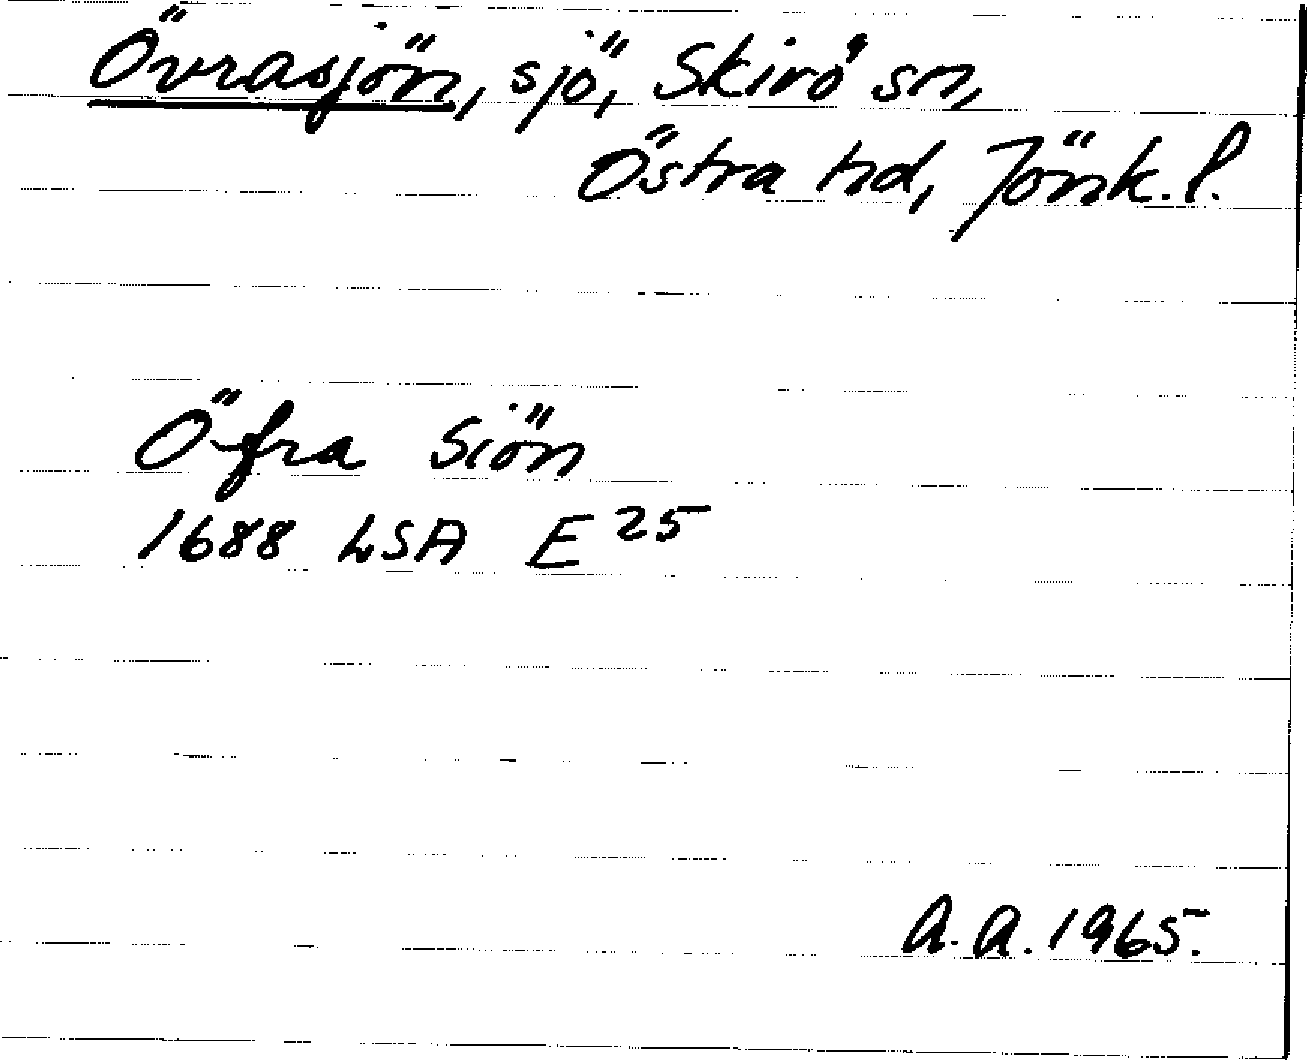 Övrasjön, sjö, Skirö sn,
Östra hd, Jönk. l.
Öfra Siön
1688 LSA E 25
A. A. 1965.